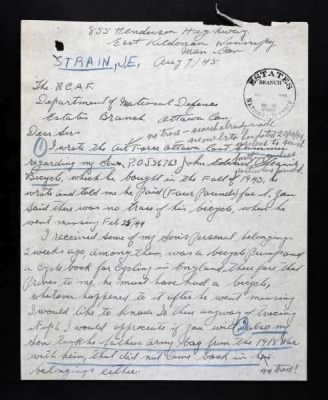 855 Henderson Highway
East Kildonan Winnipeg
Man. Can
STRAIN, J.E,
Aug 7/45
ESTATES
BRANCH
The R.C.A.F.
Department of National Defence
Estates Branch Ottawa Can
Dear Sir:
no trace - search already made
① I wrote the Air Force Ottawa Can
regarding my son P.O J36763 John
Bicycle, which he bought in the Fall of 1943, he
wrote and told me he Paid (Four Pounds) for it, you
said there was no trace of his bicycle, which he
went missing Feb 25/44
I received some of my Son's Personal belongings
2 weeks ago, among them was a bicycle Pump and
a cycle book for Cycling in England, therefore that
Proves to me, he must have had a bicycle,
whatever happened to it after he went missing
I would like to know. Is there anyway of tracing
it up I would appreciate if you will ② also my
son took his fathers Army bag from the 1918 War
with him, that did not come back in his
belongings either.
no trace!